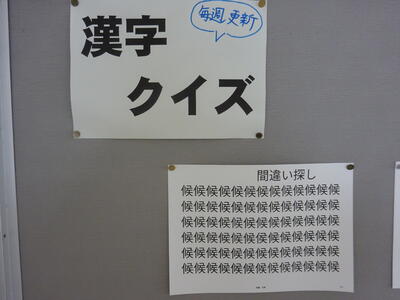 漢字
毎週更新
クイズ
間違い探し
候候候候候候候候候候候候候
候候候候候候候候候候候候候
候候候候候候候候候候候候候
候候候候候候侯候候候候候候
候候候候候候候候候候候候候
候候候候候候候候候候候候候